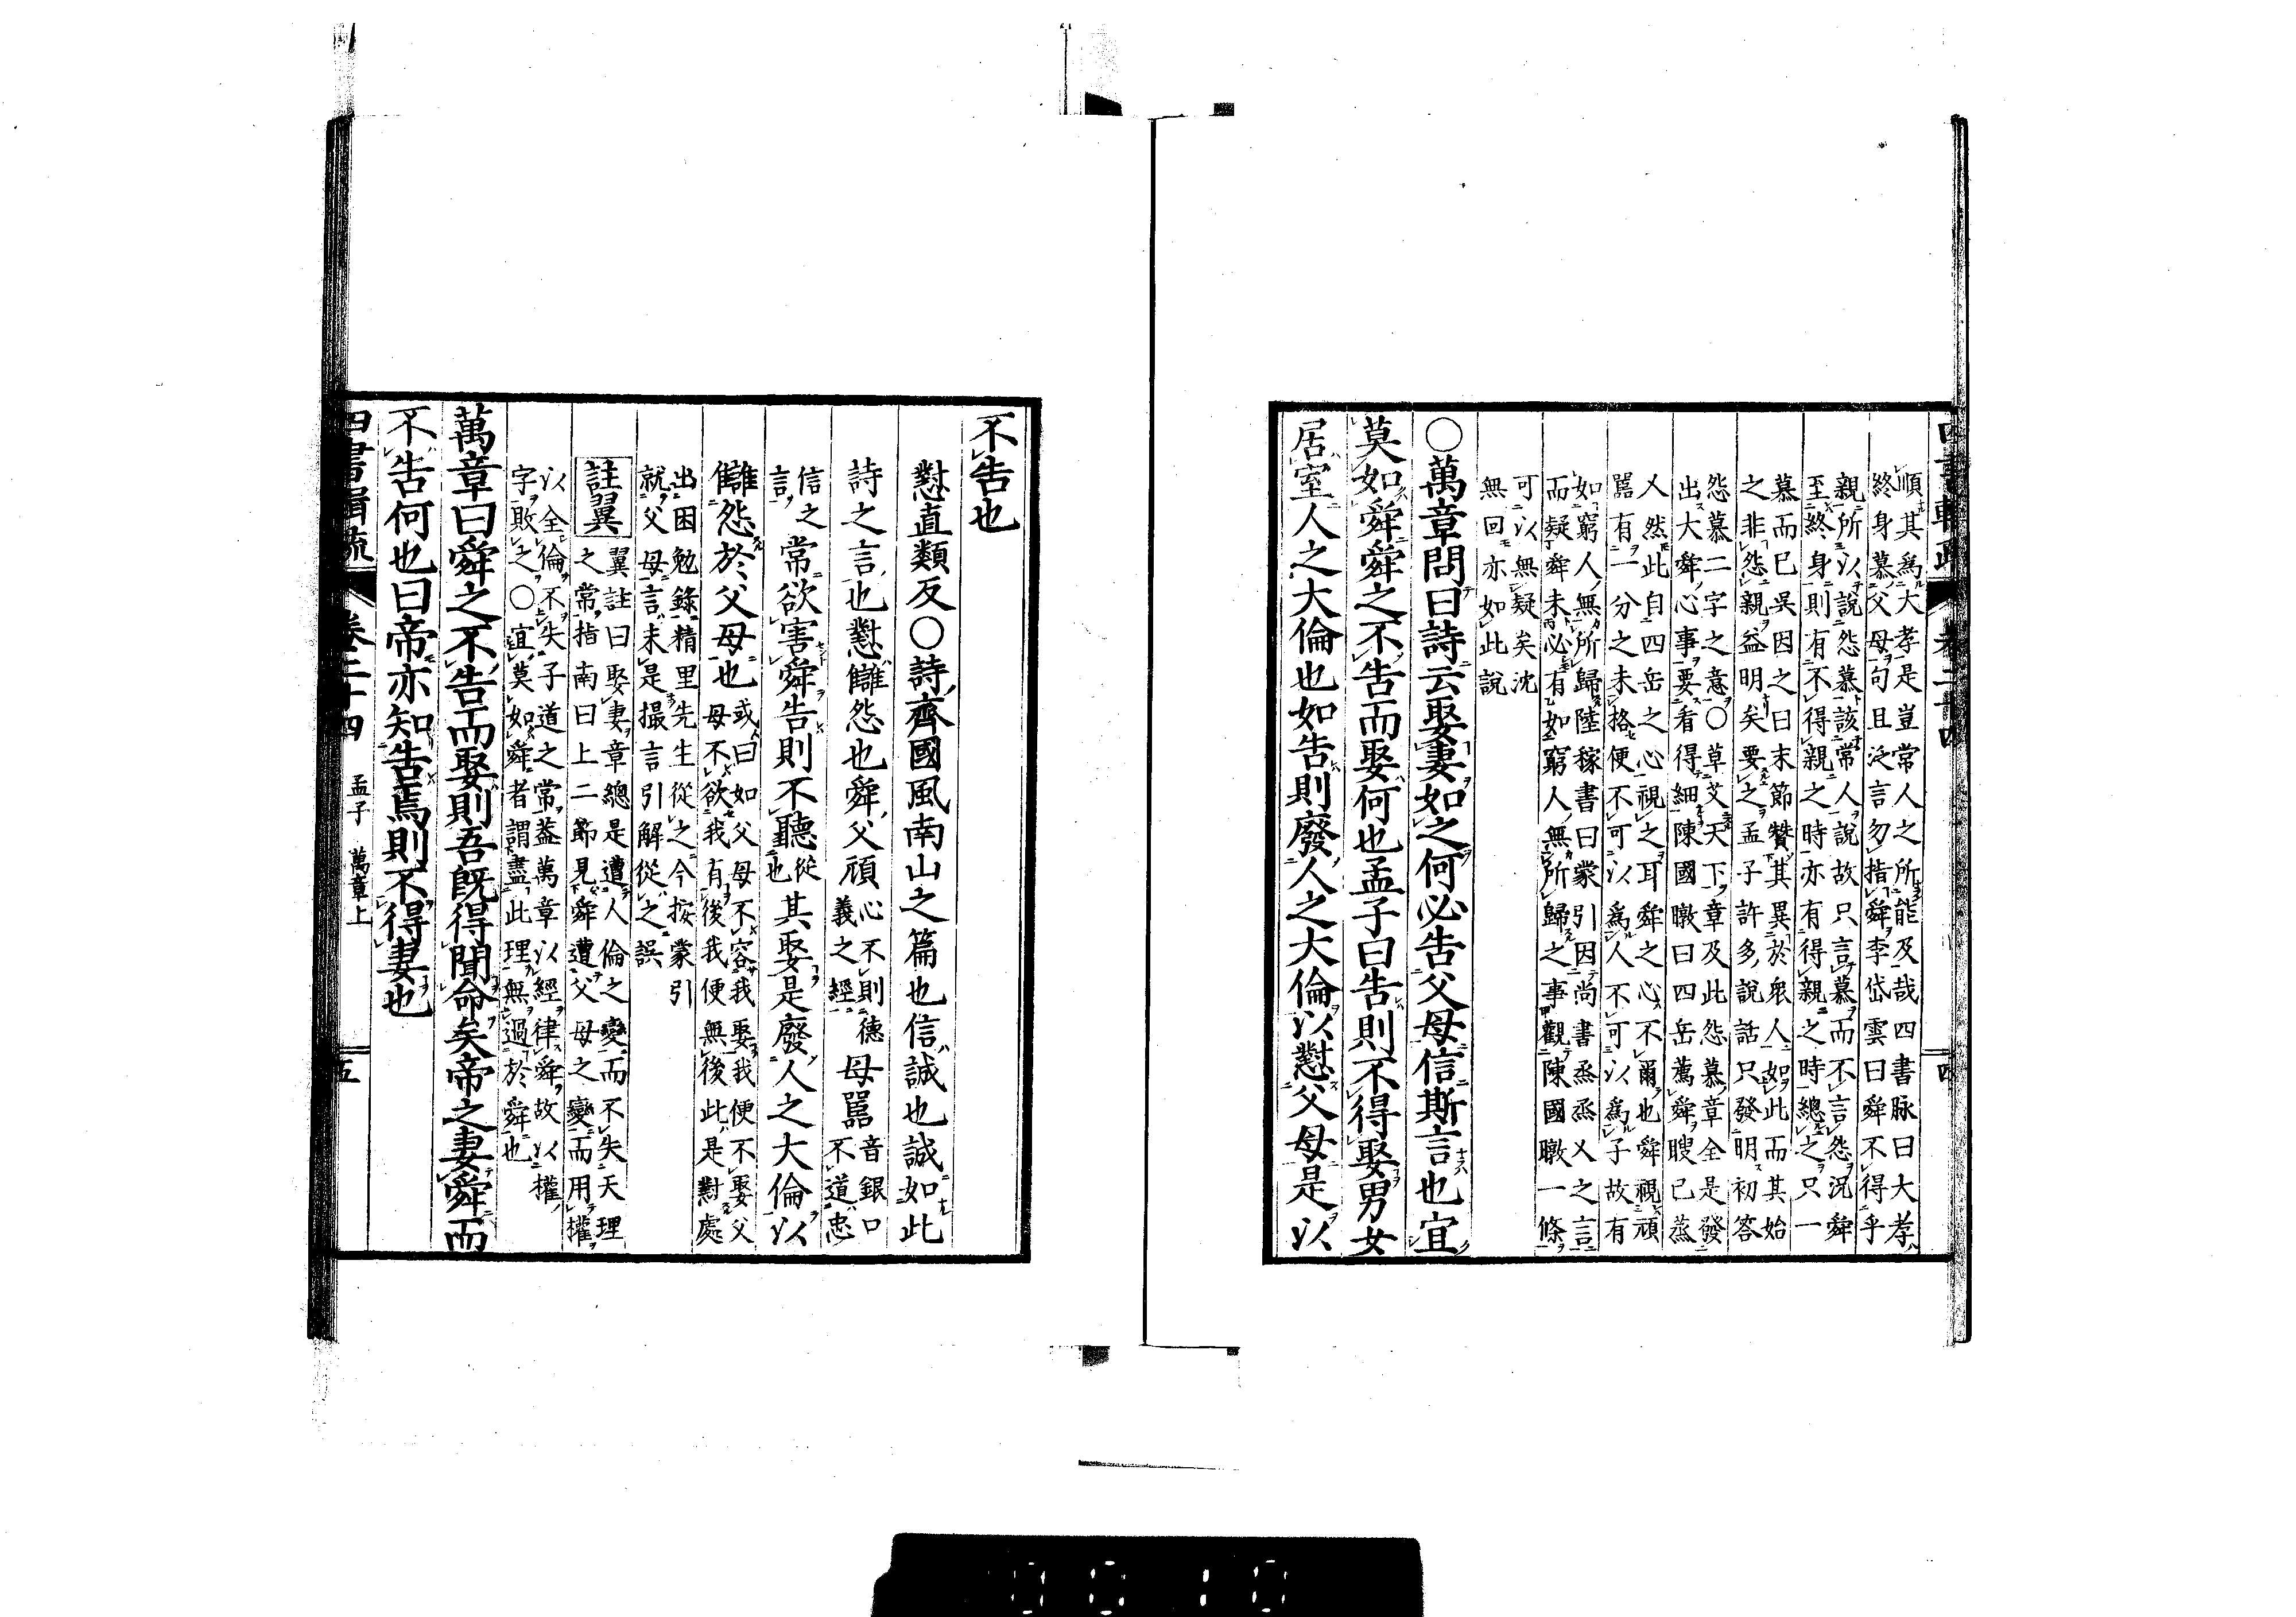 順其爲大孝是豈常人之所能及哉四書脉曰大孝
終身慕父母句且泛言勿措舜李岱雲曰舜不得乎
親所以說怨慕該常人說故只言慕而不言怨況舜
至終身則有不得親之時亦有得親之時總之只一
慕而已吳因之曰末節贊其異於衆人如此而其始
之非怨親益明矣要之孟子許多說話只發明初答
怨慕二字之意〇草艾天下章及此怨慕章全是發
出大舜心事要看得細陳國暾曰四岳薦舜瞍已烝
人然此自四岳之心視之耳舜之心不爾也舜視頑
嚚有一分之未格便不可以爲人不可以爲子故有
如窮人無所歸陸稼書曰蒙引因尚書烝烝乂之言
而疑舜未必有如窮人無所歸之事觀陳國暾一條
可以無疑矣沈
無回亦如此說
〇萬章問曰詩云娶妻如之何必告父母信斯言也宜
莫如舜舜之不告而娶何也孟子曰告則不得娶男女
居室人之大倫也如告則廢人之大倫以懟父母是以
四 
不告也
懟直類反〇詩齊國風南山之篇也信誠也誠如此
詩之言也懟讎怨也舜父頑心不則德義之經母嚚音銀口不道忠
信之言常欲害舜告則不聽從也其娶是廢人之大倫以
讎怨於父母也或曰如父母不容我娶我便不娶父母不欲我有後我便無後此是懟處
出困勉錄精里先生從之今按蒙引
就父母言未是撮言引解從之誤
註翼翼註曰娶妻章總是遭人倫之變而不失天理之常指南曰上二節見舜遭父母之變而用權
以全倫不失子道之常葢萬章以經律舜故以權
字敗之〇宜莫如舜者謂盡此理無過於舜也
萬章曰舜之不告而娶則吾旣得聞命矣帝之妻舜而
不告何也曰帝亦知告焉則不得妻也
四書輯疏 卷二十四 孟子 萬章上 五